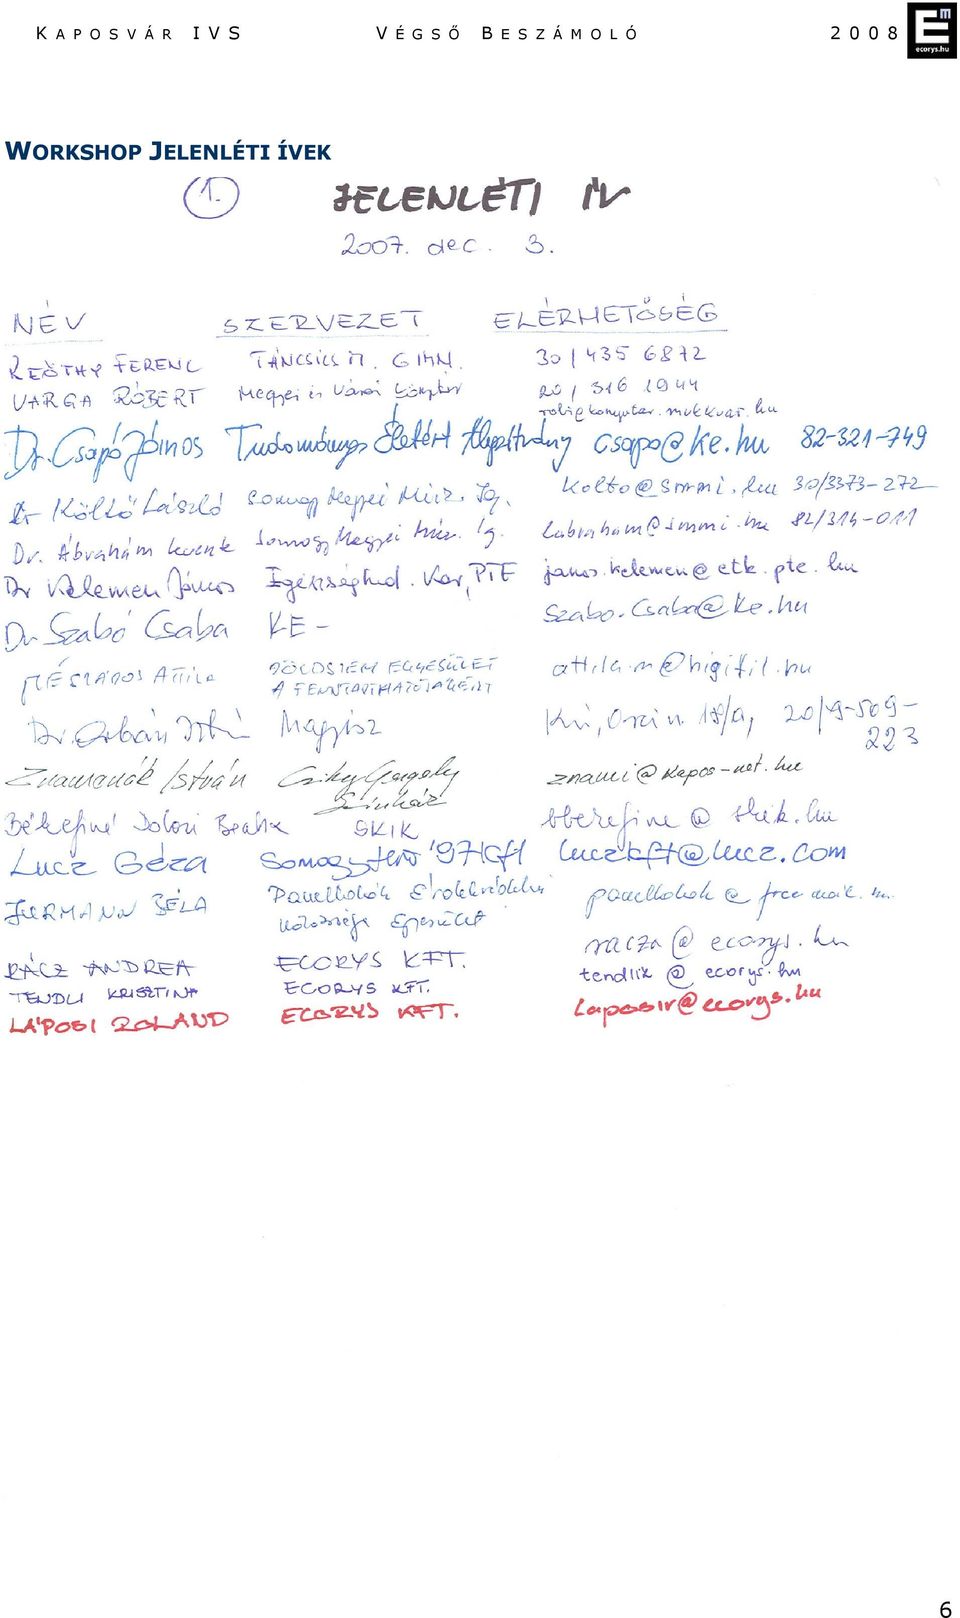 KAPOSVÁR IVS VÉGSŐ BESZÁMOLÓ 2008
Em
ecorys.hu
WORKSHOP JELENLÉTI ÍVEK
1. JELENLÉTI ÍV
2007. dec. 3.
NÉV SZERVEZET ELÉRHETŐSÉG
REŐTHY FERENC TÁNCSICS M. GIMN. 30/435 6872
VARGA RÓBERT Megyei és Városi Könyvtár 20/316 1944
Dr. Csapó János Tudományos Életért Alapítvány csapo@ke.hu 82-321-749
dr Költő László Somogy Megyei Múz. Ig. kolto@smmi.hu 30/3373-272
Dr. Ábrahám Levente Somogy Megyei Múz. Ig. labraham@smmi.hu 82/314-011
Dr Kelemen János Egészségtud. Kar, PTE janos.kelemen@etk.pte.hu
Dr Szabó Csaba KE- szabo.csaba@ke.hu
MÉSZÁROS ATTILA EGYESÜLET
A FENNTARTHATÓSÁGÉRT
Dr. Orbán Magyisz 20/9-509-
223
Znamenák István Csiky Gergely znami@kapos-net.hu
Színház
Békefiné Beáta SKIK
Lucz Géza Somogyterv '97 Kft luczkft@lucz.com
HERMANN BÉLA Panellakók Érdekvédelmi panellakok@freemail.hu
Egyesület
RÁCZ ANDREA ECORYS KFT. racza@ecorys.hu
TENDLI KRISZTINA ECORYS KFT. tendlik@ecorys.hu
LÁPOSI ROLAND ECORYS KFT. laposir@ecorys.hu
6